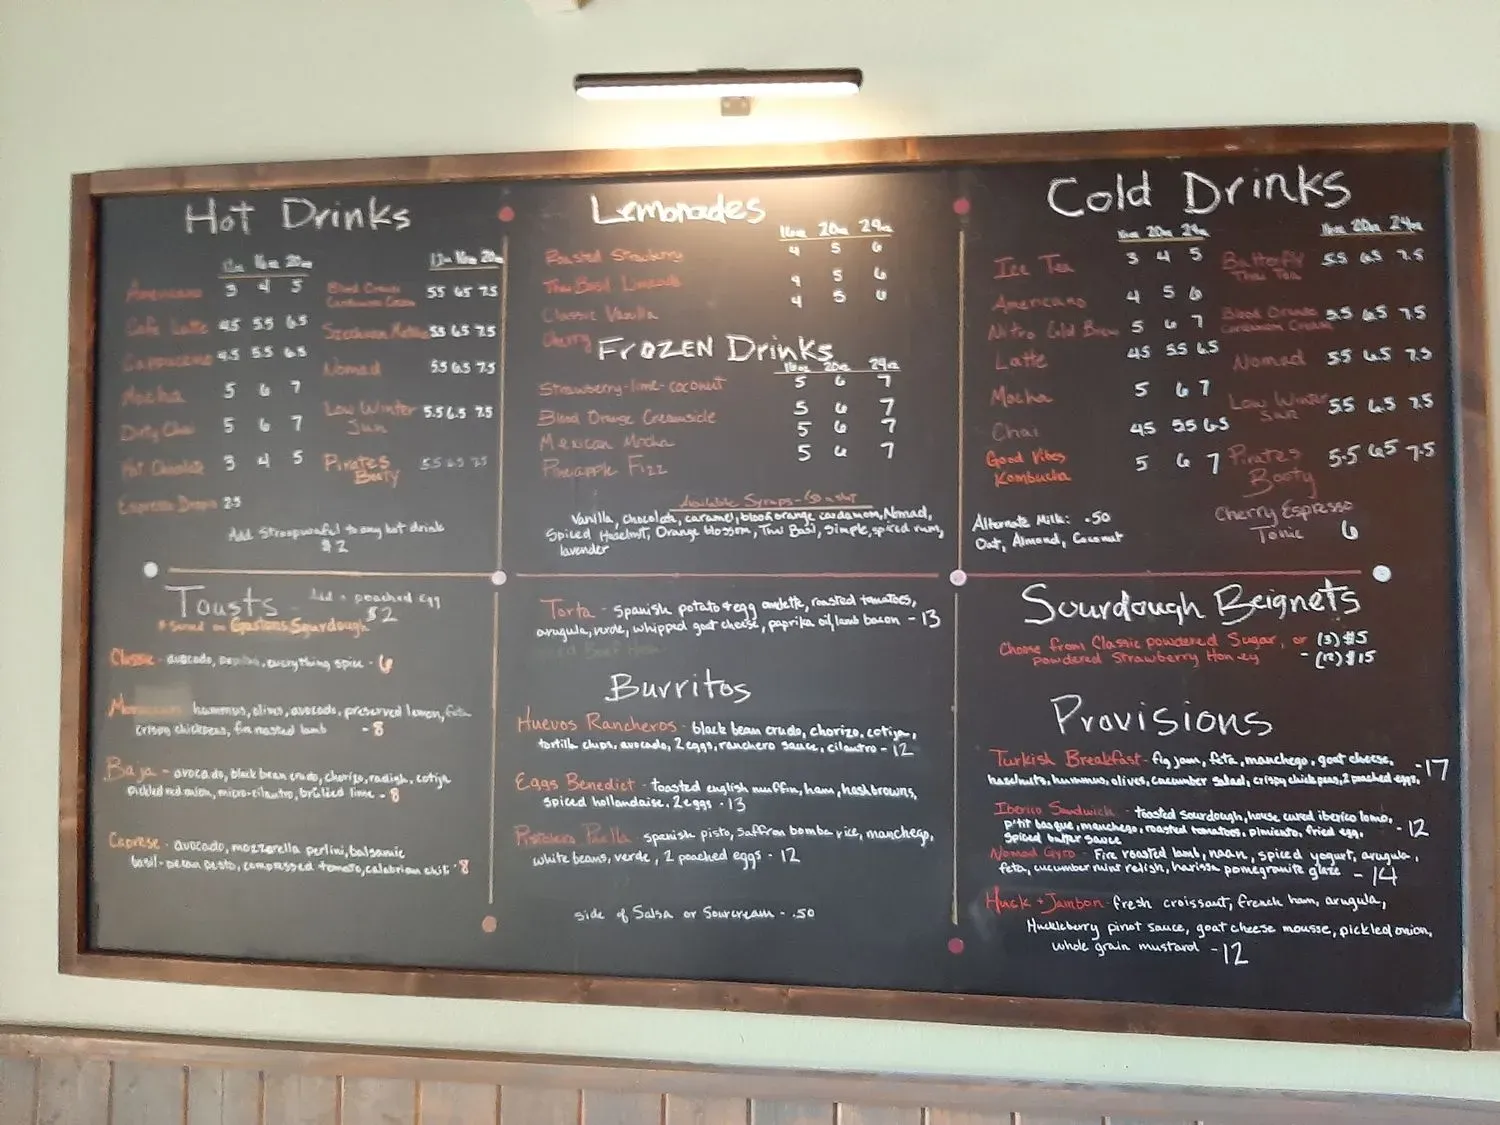 Hot Drinks
12oz 16oz 20oz
Americano 3 4 5
Cafe Latte 4.5 5.5 6.5
Cappuccino 4.5 5.5 6.5
Mocha 5 6 7
Dirty Chai 5 6 7
Hot Chocolate 3 4 5
Espresso Dopio 2.5
12oz 16oz 20oz
Blood Orange
Cardamom Cream 5.5 6.5 7.5
Szechuan Mocha 5.5 6.5 7.5
Nomad 5.5 6.5 7.5
Low Winter
Sun 5.5 6.5 7.5
Pirates
Booty 5.5 6.5 7.5
Add Stroopwafel to any hot drink
$2
Lemonades
16oz 20oz 24oz
Roasted Strawberry 4 5 6
Thai Basil Limeade 4 5 6
Classic Vanilla 4 5 6
Cherry
Frozen Drinks
16oz 20oz 24oz
Strawberry-lime-coconut 5 6 7
Blood Orange Creamsicle 5 6 7
Mexican Mocha 5 6 7
Pineapple Fizz 5 6 7
Available Syrups - .50 a shot
Vanilla, chocolate, caramel, blood orange cardamom, Nomad,
Spiced Hazelnut, Orange blossom, Thai Basil, Simple, spiced rum,
lavender
Cold Drinks
16oz 20oz 24oz
Ice Tea 3 4 5
Americano 4 5 6
Nitro Cold Brew 5 6 7
Latte 4.5 5.5 6.5
Mocha 5 6 7
Chai 4.5 5.5 6.5
Good Vibes
Kombucha 5 6 7
Alternate Milk: .50
Oat, Almond, Coconut
16oz 20oz 24oz
Butterfly
Thai Tea 5.5 6.5 7.5
Blood Orange
Cardamom Cream 5.5 6.5 7.5
Nomad 5.5 6.5 7.5
Low Winter
Sun 5.5 6.5 7.5
Pirates
Booty 5.5 6.5 7.5
Cherry Espresso
Tonic 6
Toasts - Add a poached egg
$2
* Served on Gastons Sourdough
Classic - avocado, everything spice - 6
hummus, olives, avocado, preserved lemon, feta
crispy chickpeas, fire roasted lamb - 8
Baja - avocado, black bean crudo, chorizo, radish, cotija
pickled red onion, micro-cilantro, brûléed lime - 8
Caprese - avocado, mozzarella perlini, balsamic
basil-pecan pesto, compressed tomato, calabrian chili - 8
Torta - spanish potato & egg omlette, roasted tomatoes,
arugula, verde, whipped goat cheese, paprika oil, lamb bacon - 13
Burritos
Huevos Rancheros - black bean crudo, chorizo, cotija,
tortilla chips, avocado, 2 eggs, ranchero sauce, cilantro - 12
Eggs Benedict - toasted english muffin, ham, hashbrowns,
spiced hollandaise, 2 eggs - 13
Pistolero Paella spanish pisto, saffron bomba rice, manchego,
white beans, verde, 2 poached eggs - 12
side of Salsa or Sourcream - .50
Sourdough Beignets
Choose from Classic powdered Sugar, or (3) $5
powdered Strawberry Honey - (12) $15
Provisions
Turkish Breakfast - fig jam, feta, manchego, goat cheese,
hazelnuts, hummus, olives, cucumber salad, crispy chickpeas, 2 poached eggs, - 17
Iberico Sandwich - toasted sourdough, house cured iberico lomo,
p'tit basque, manchego, roasted tomatoes, pimiento, fried egg, - 12
spiced butter sauce
Nomad Gyro - Fire roasted lamb, naan, spiced yogurt, arugula,
feta, cucumber mint relish, harissa pomegranate glaze - 14
Huck + Jambon - fresh croissant, french ham, arugula,
Huckleberry pinot sauce, goat cheese mousse, pickled onion,
whole grain mustard - 12